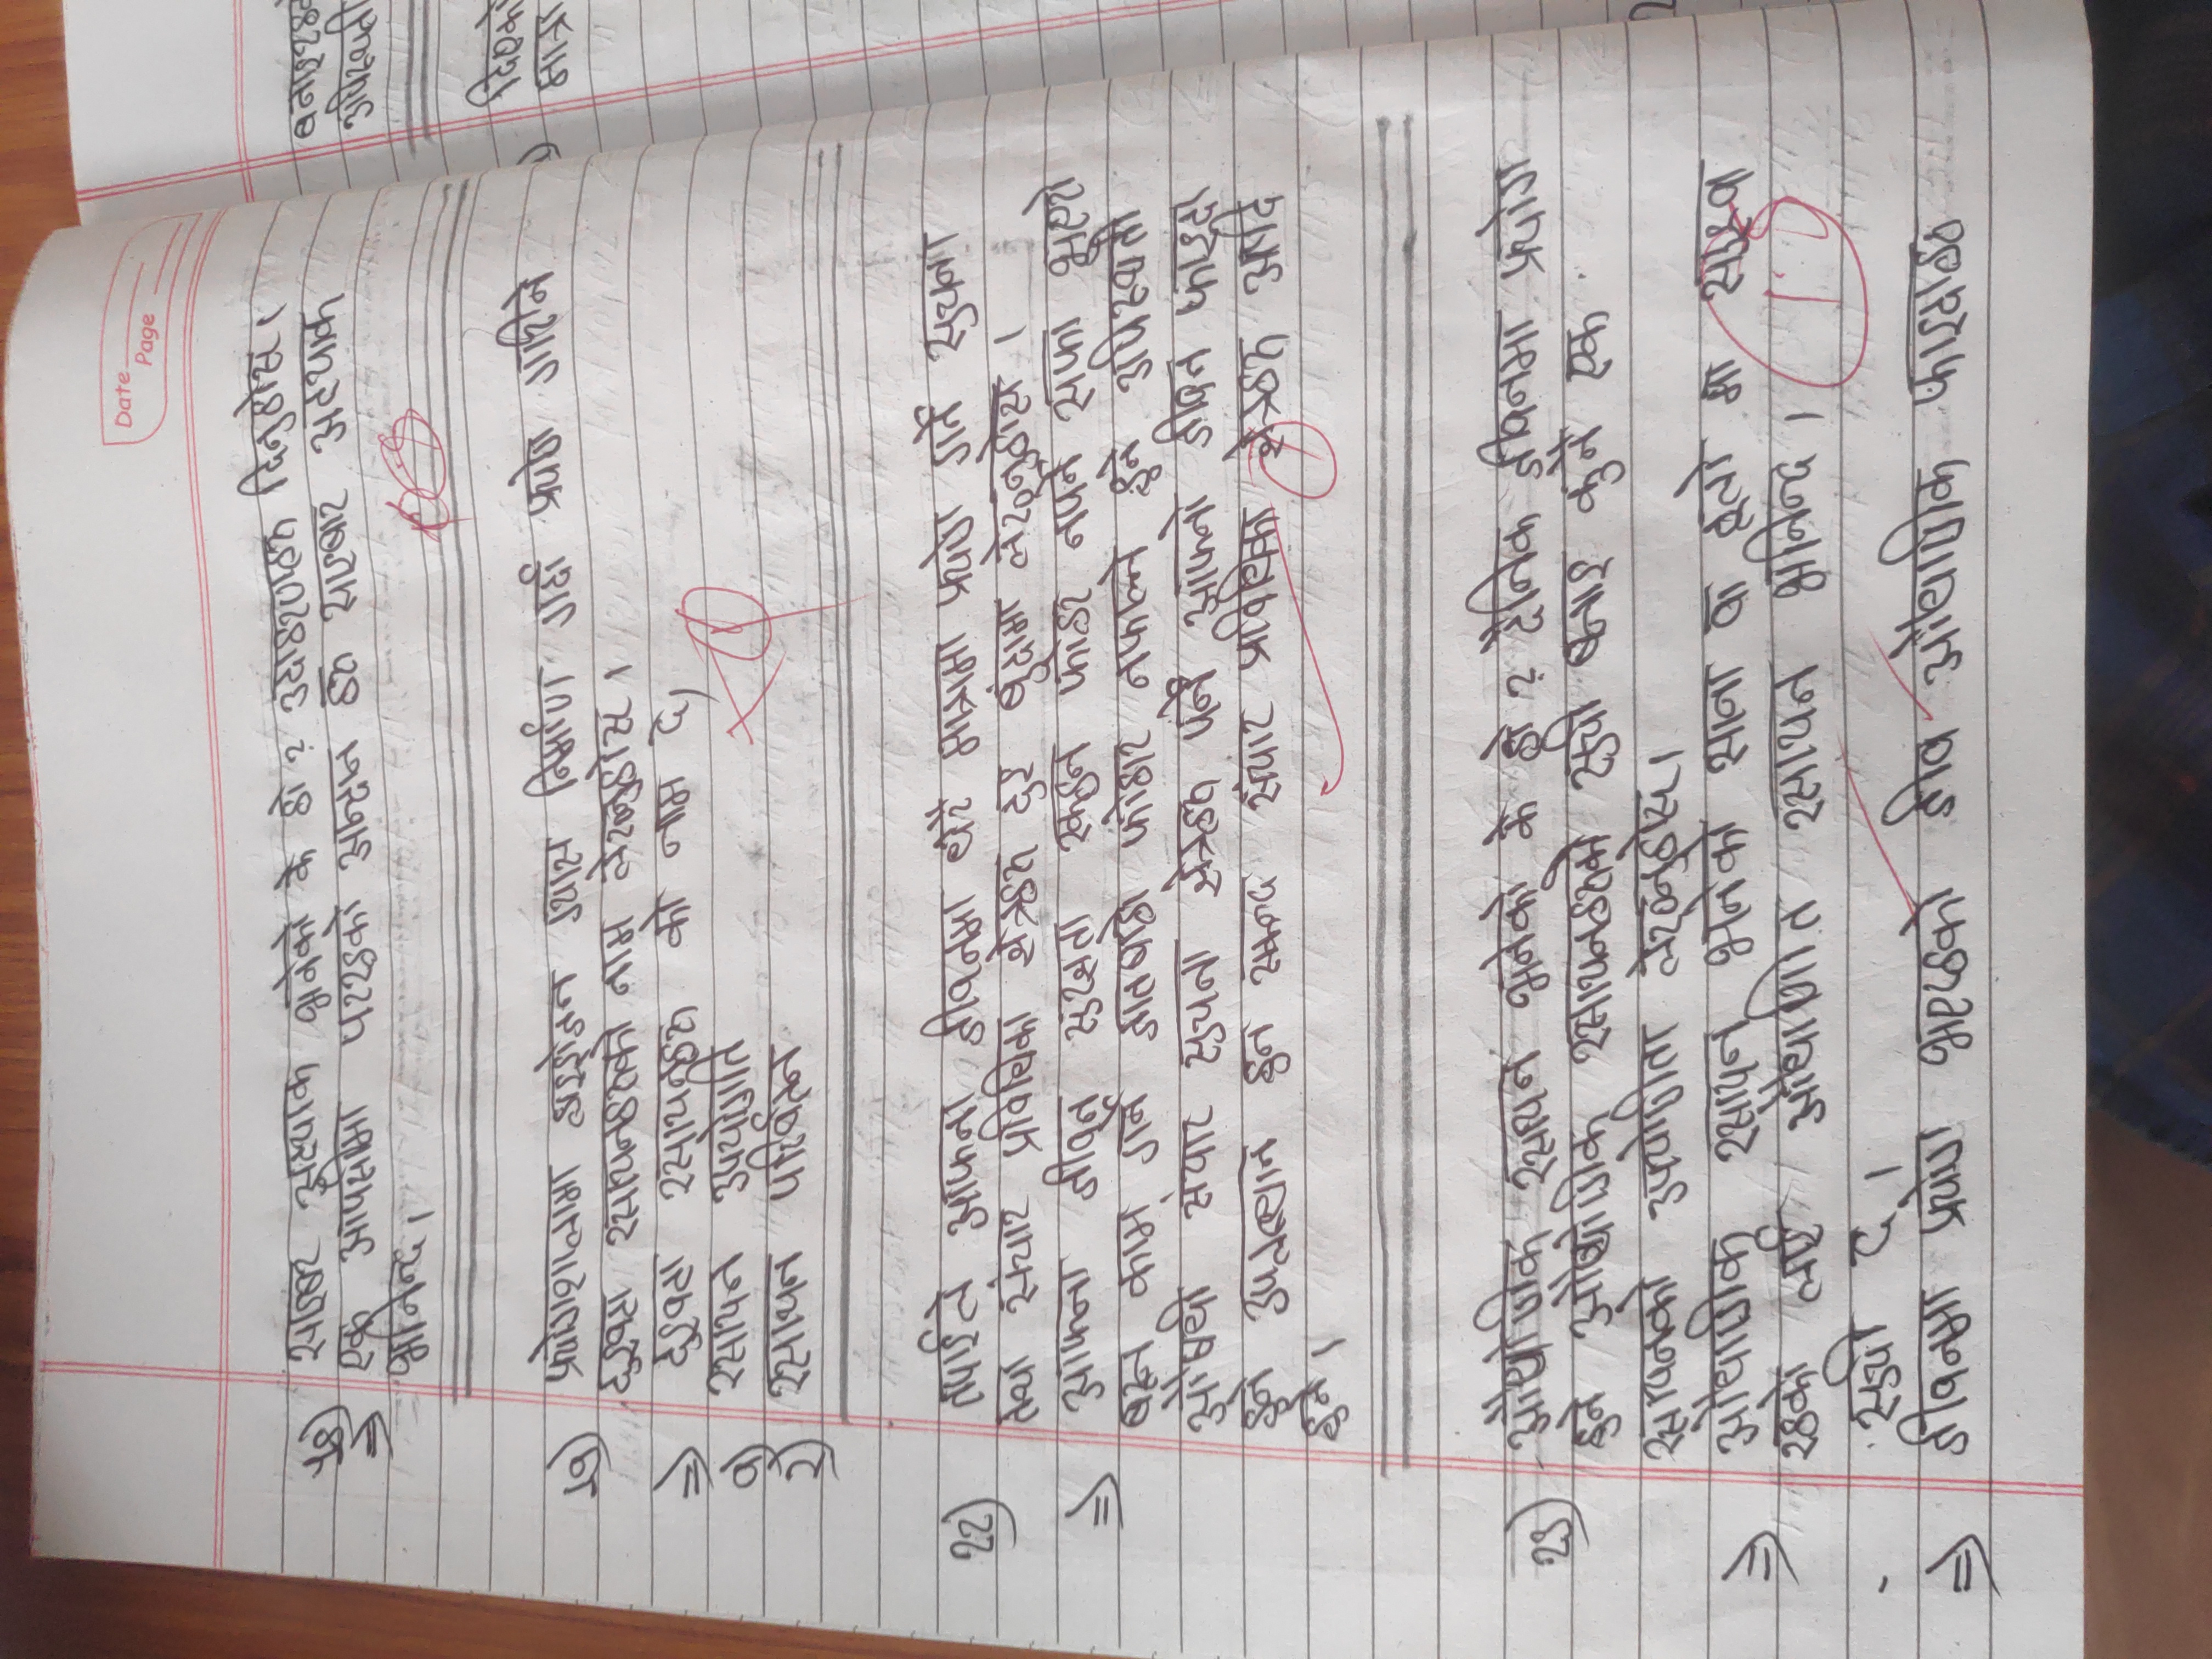 Date
Page
१८) साइबर अट्याक भनेको के हो ? उदाहरणहरू दिनुहोस ।
⇒ एक आपसीमा पररहको अन्दान हरू साइबार अट्याक
भनिन्द ।
१९) प्रयोगशालामा हाइड्रोजन ग्यास निर्माण गर्दा प्रयोग गरिने
दुइवटा रसायनहरूको नाम लेख्नुहोस ।
⇒ दुइवटा रसायनहरू को नाम द,
१) रसायन उपयोगति
२) रसायन परिर्वतन
२२) तपाईले आफना जीवनमा धेरै मात्रामा प्रयोग गर्ने सुचना
तथा संचार प्रविधिका क्षेत्रहरू दुइ बुंदामा लेख्नुहोस ।
⇒ आफना जीवन सुरक्षता फोहर नपर्ने सफा भएरो
बस्न काम गर्ने फोहार नफाल्ने हुने उपिस्थती
औषधी संचार सुचना क्षेत्रहरू पर्ने आफनो जीवन फाइदा
हुने हुन सकन्द संचार प्रविधिका क्षेत्रहरू आदि
हुने ।
२३) औधोगीक रसायन भनेको के हो ? दैनिक जीवनमा प्रयोग
हुने औधोगीक रसायनहरूको सुची बनाइ कुनै एक
रसायनको उपयोगीता लेख्नुहोस ।
⇒ औधागीक रसायन भनेको साना वा ठुलो मा
रहको लाई औधागित रसायन भनिन्द ।
सुची द ।
⇒ जीवनमा प्रयोग भएरहको जीव औधागीक फाइदाहरु
बनाइरहक
उपिस्थती
दिएको
मात्रा